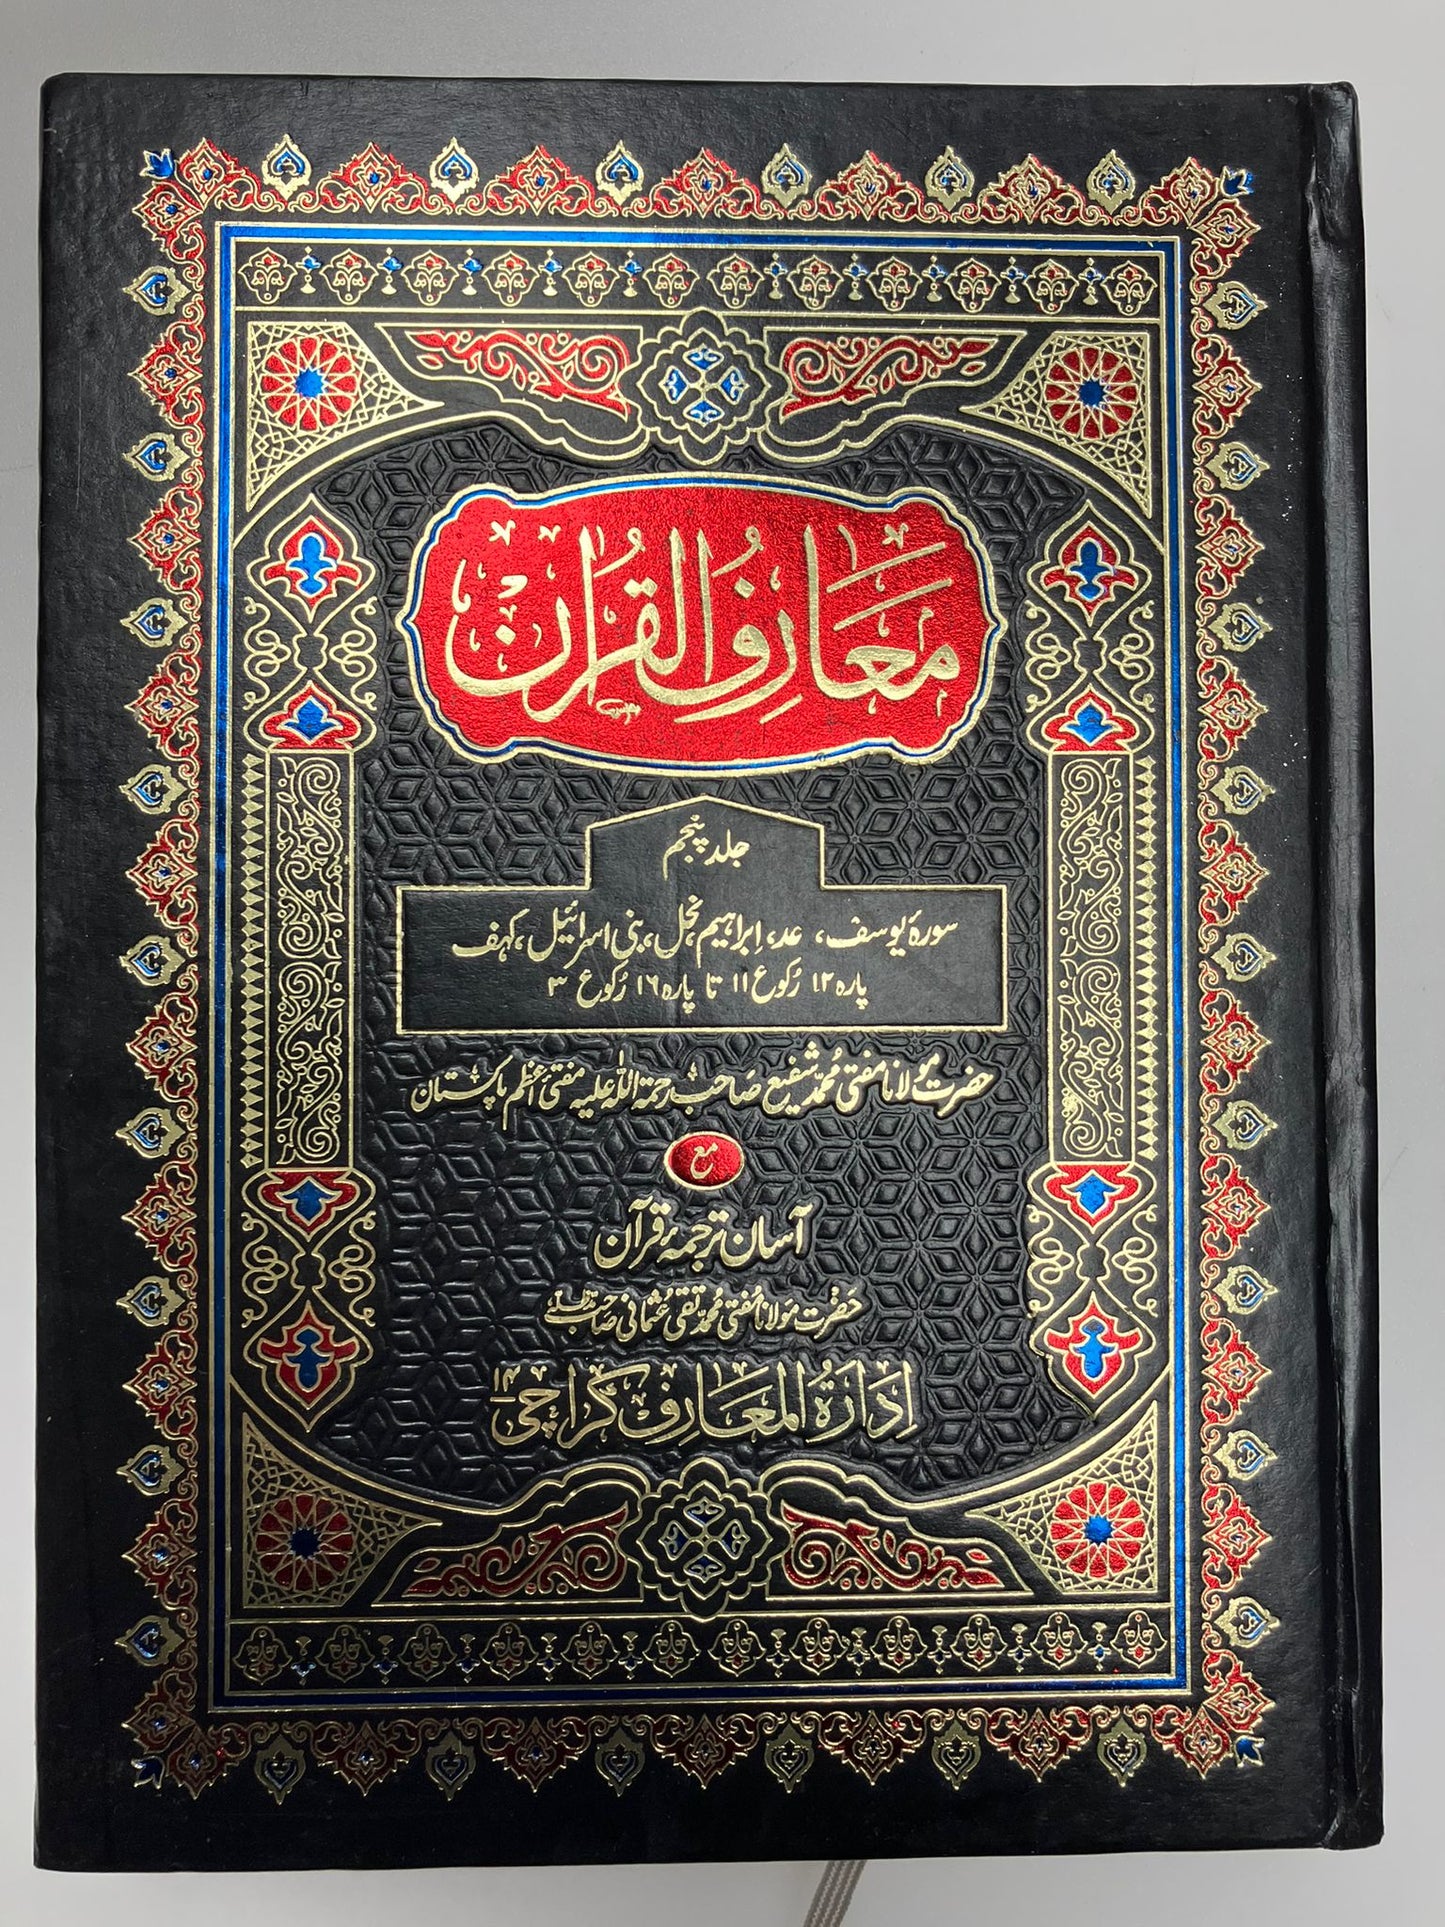 مَعَارِفُ القُرآن
جلد پنجم
سورۂ یوسف، عد، اِبراہیم، نحل، بنی اسرائیل، کہف
پارہ ۱۲ رُکوع ۱۱ تا پارہ ۱۶ رُکوع ۳
حضرت مولانا مفتی محمّد شفیع صاحب رحمۃ اللہ علیہ مفتیٔ اعظم پاکستان
مع
آسان ترجمۂ قرآن
حَضرت مولانا مُفتی محمّد تقی عُثمانی صَاحب
اِدَارَۃُ المَعَارِف کراچی ۱۴